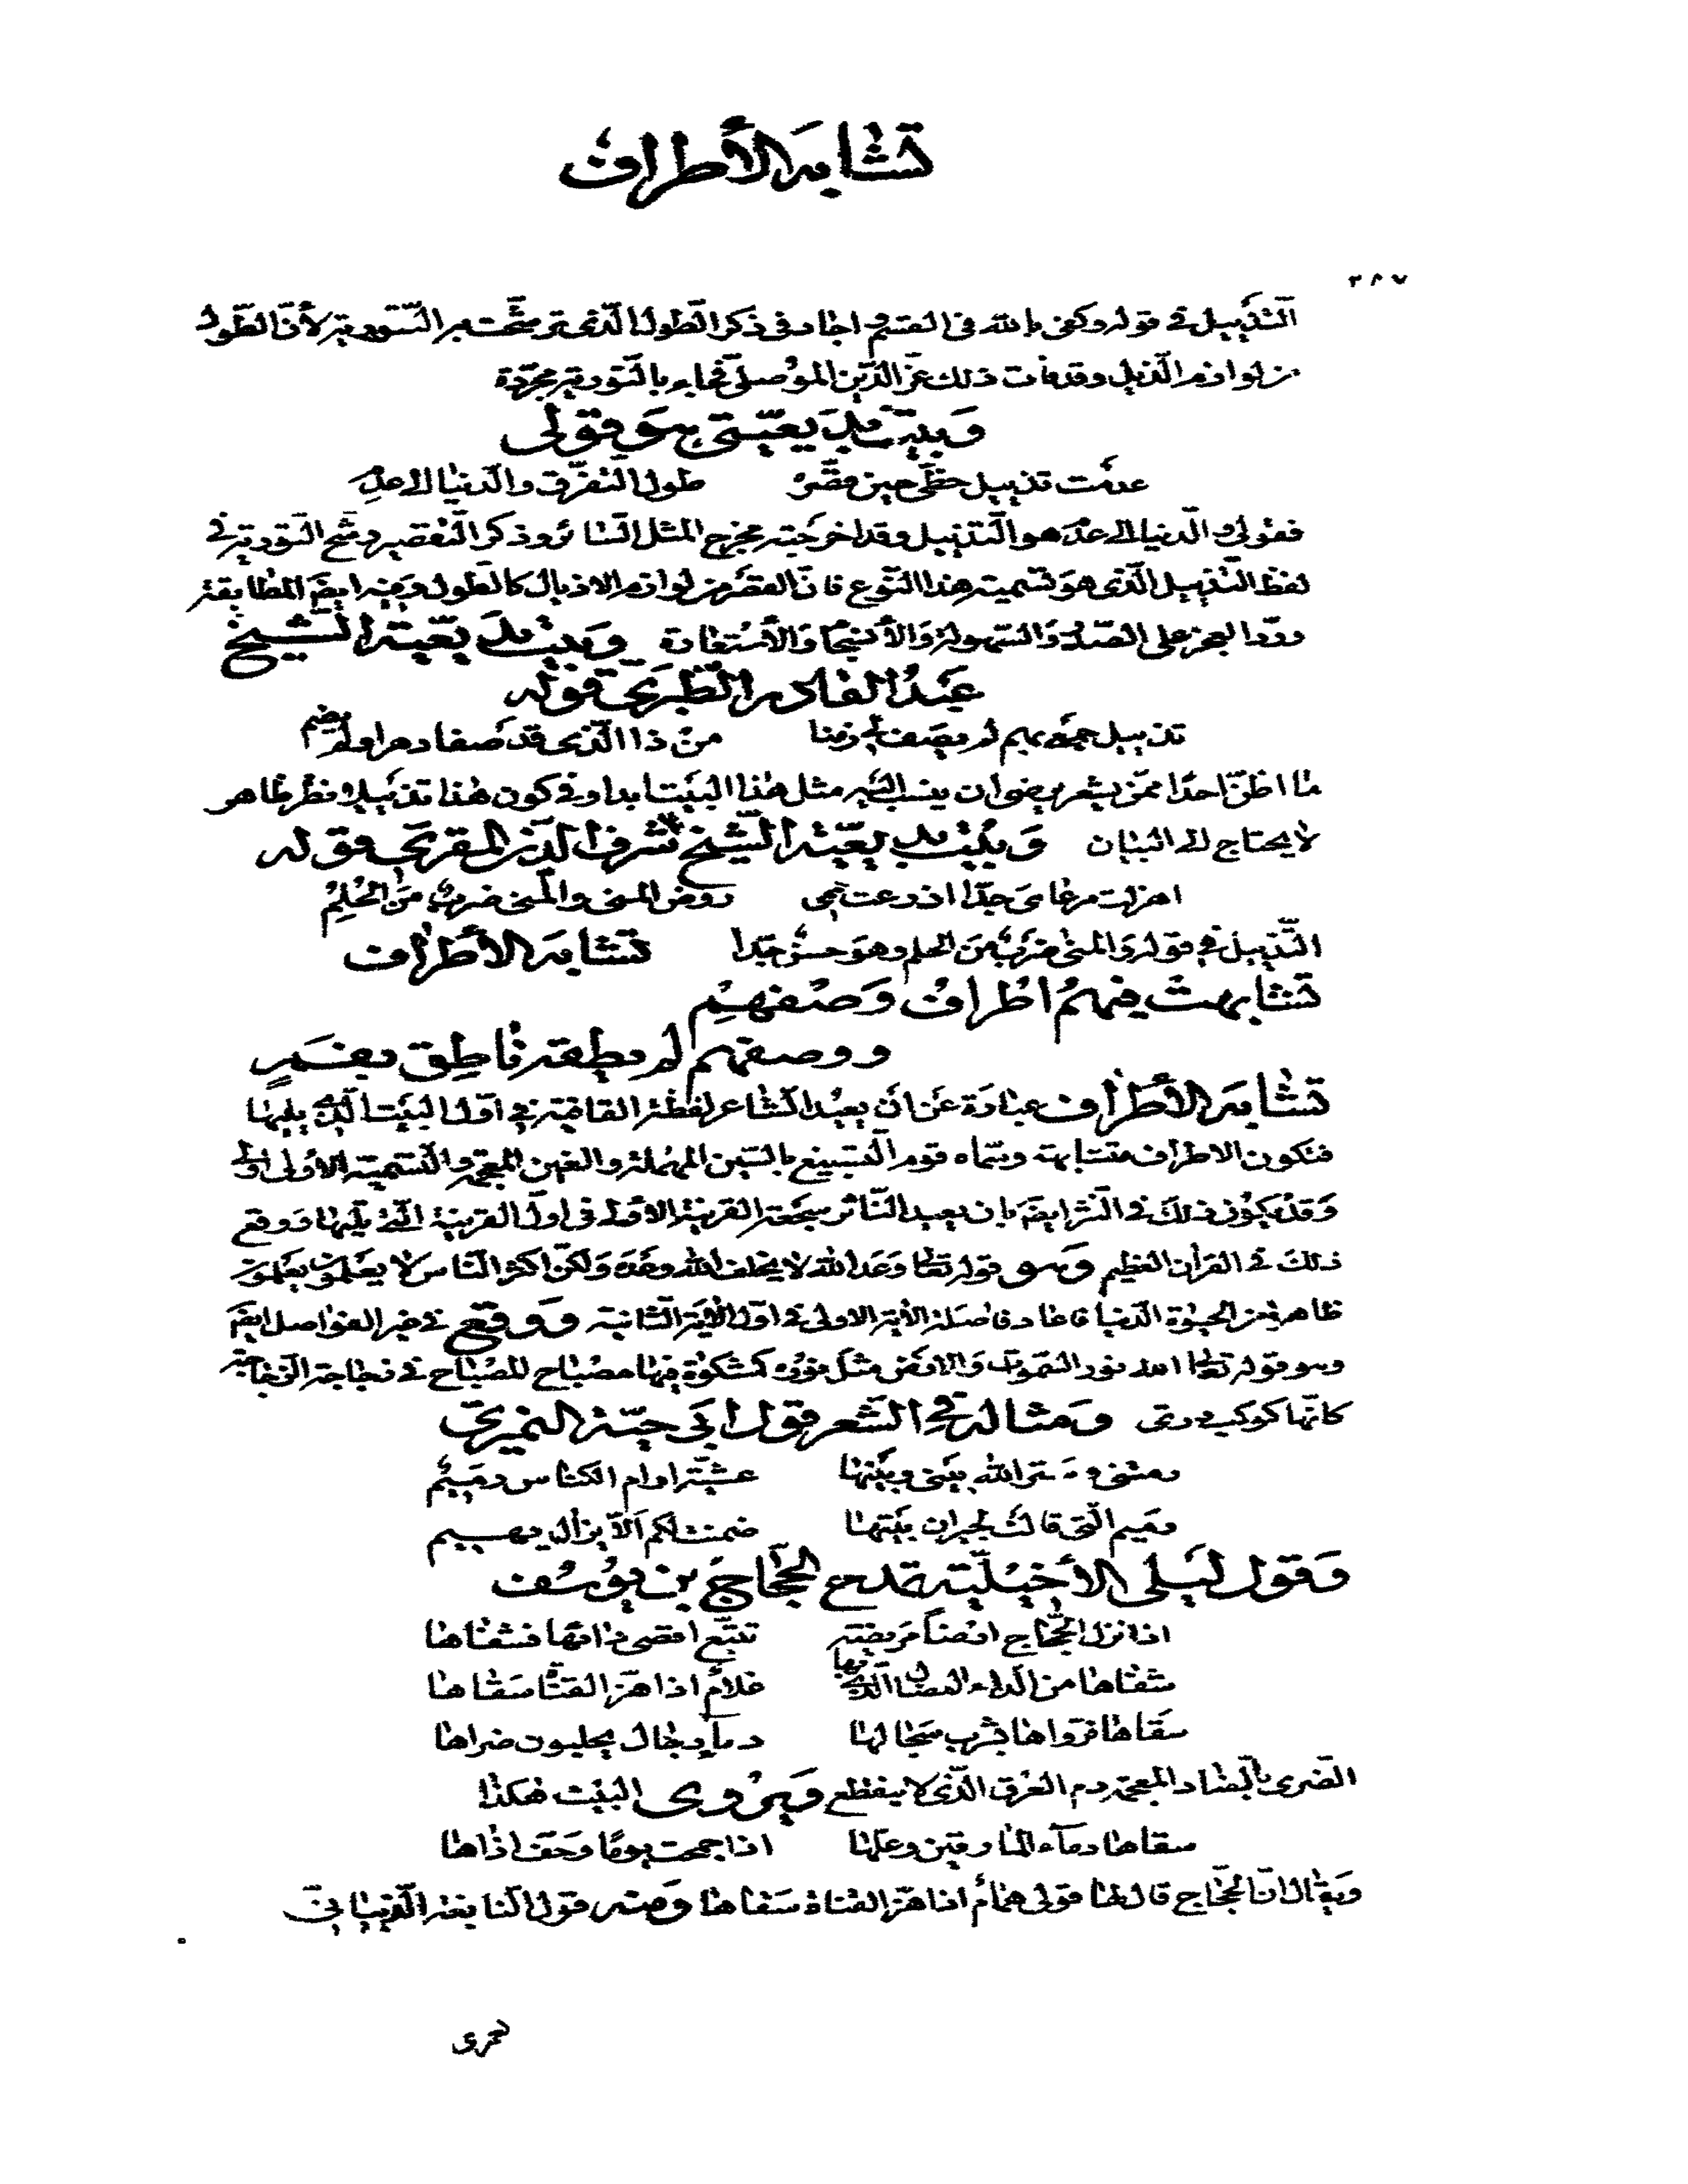 تشابه الأطراف
٣٨٧
التّذييل في قوله وكفى بالله في القسم واجاد في ذكر الطول الّذي ترشّحت به التّورية لأنّ الطّول
من لوازم الذيل وقد فات ذلك عزّ الدّين الموصلي فجاء بالتورية مجرّدة
وبيت بديعيّتي هو قولي
عدمت تذييل حظّي حين قصّره طول التفرّق والدّنيا الى عدم
فقولي والدنيا الى عدم هو التّذييل وقد اخرجته مخرج المثل السّائر وذكر التّقصير رشّح التّورية في
لفظ التّذييل الّذي هو تسمية هذا النّوع فانّ القصر من لوازم الاذيال كالطول وفيه ايضا المطابقة
وردّ العجز على الصّدر والسّهولة والأنسجام والأستعارة وبيت بديعيّة الشّيخ
عبد القادر الطّبري قوله
تذييل جمعهم لم يصف لي زمنا من ذا الّذي قد صفا دهرا ولم يضم
ما اظنّ احدا ممّن يشعر يرضى ان ينسب اليه مثل هذا البيت ابدا وفي كون هذا تذييلا نظر ظاهر
لا يحتاج الى البيان وبيت بديعيّة الشّيخ شرف الدّين المقري قوله
اهزلت مرعاى جدّا اذ رعت هممي روض المنى والمنى ضرب من الحلم
التّذييل في قوله والمنى ضرب من الحلم وهو حسن جدّا تشابه الأطراف
تشابهت فيهم اطراف وصفهم
ووصفهم لم يطقه ناطق بفم
تشابه الأطراف عبارة عن ان يعيد الشّاعر لفظة القافية في اوّل البيت الّذي يليها
فتكون الاطراف متشابهة وسمّاه قوم التسبيغ بالسّين المهملة والغين المعجمة والتّسمية الأولى اولى
وقد يكون ذلك في النّثر ايضا بان يعيد النّاثر سجعة القرينة الاولى في اوّل القرينة التي يليها ووقع
ذلك في القرآن العظيم وهو قوله تعالى وعد الله لا يخلف الله وعده ولكنّ اكثر النّاس لا يعلمون يعلمون
ظاهرا من الحيوة الدّنيا فاعاد فاصلة الآية الاولى في اوّل الآية الثّانية ووقع في غير الفواصل ايضا
وهو قوله تعالى الله نور السّموات والارض مثل نوره كمشكوة فيها مصباح المصباح في زجاجة الزجاجة
كانّها كوكب درّي ومثاله في الشّعر قول ابي حيّة النميري
رمتني وستر الله بيني وبينها عشيّة ارام الكناس رميم
رميم الّتي قالت لجيران بيتها ضمنت لكم الّا يزال يهيم
وقول ليلى الأخيليّة تمدح الحجّاج بن يوسف
اذا نزل الحجّاج ارضا مريضة تتبّع اقصى دائها فشفاها
شفاها من الداء العضال الّذي بها غلام اذا هزّ القنا سقاها
سقاها فروّاها بشرب سجالها دماء رجال يحلبون ضراها
الضرى بالضاد المعجمة دم العرق الّذي لا ينقطع ويروى البيت هكذا
سقاها دماء المارقين وعلّها اذا جمحت يوما وخفّ اذاها
ويقال انّ الحجّاج قال لها قولي همام اذا هزّ القناة سقاها ومنه قول النّابغة الذّبياني
لعمري